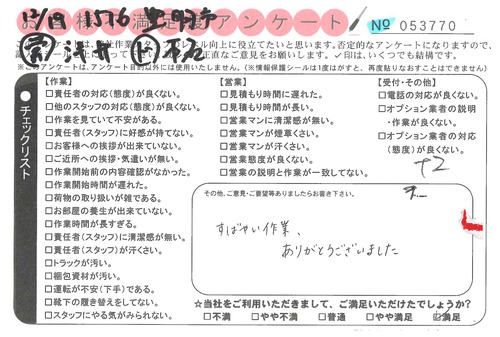 お客様満足度アンケート
№ 053770
1576
このアンケートは、
作業スタッフのレベル向上に役立てたいと思います。否定的なアンケートになりますので、
正直なご意見をお願いします。✓印は、いくつでも結構です。
※このアンケートは、アンケート目的以外には使用いたしません。(※情報保護シールは1度はがすと、再度貼りなおすことはできません)
チェックリスト
【作業】
□責任者の対応(態度)が良くない。
□他のスタッフの対応(態度)が良くない。
□作業を見ていて不安がある。
□責任者(スタッフ)に好感が持てない。
□お客様への挨拶が出来ていない。
□ご近所への挨拶・気遣いが無い。
□作業開始前の内容確認がなかった。
□作業開始時間が遅れた。
□荷物の取り扱いが雑である。
□お部屋の養生が出来ていない。
□作業時間が長すぎる。
□責任者(スタッフ)に清潔感が無い。
□責任者(スタッフ)が汗くさい。
□トラックが汚い。
□梱包資材が汚い。
□運転が不安(下手)である。
□靴下の履き替えをしてない。
□スタッフにやる気がみられない。
【営業】
□見積もり時間に遅れた。
□見積もり時間が長い。
□営業マンに清潔感が無い。
□営業マンが煙草くさい。
□営業マンが汗くさい。
□営業態度が良くない。
□営業の説明と作業が一致してない。
【受付・その他】
□電話の対応が良くない。
□オプション業者の説明
・作業が良くない。
□オプション業者の対応
(態度)が良くない。
+2
その他、ご意見・ご要望等ありましたらお書き下さい。
すばやい作業、
ありがとうございました
☆当社をご利用いただきまして、ご満足いただけたでしょうか?
□不満 □やや不満 □普通 □やや満足 ☑満足